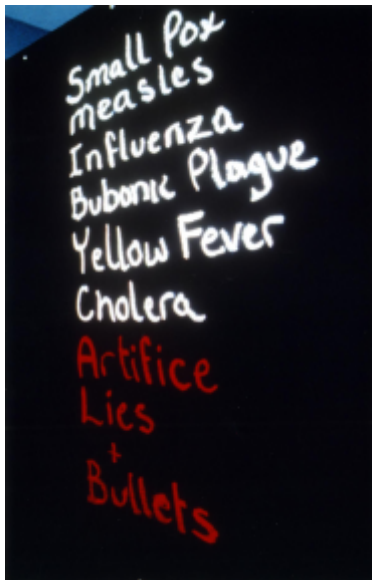 Small Pox
measles
Influenza
Bubonic Plague
Yellow Fever
Cholera
Artifice
Lies
+
Bullets